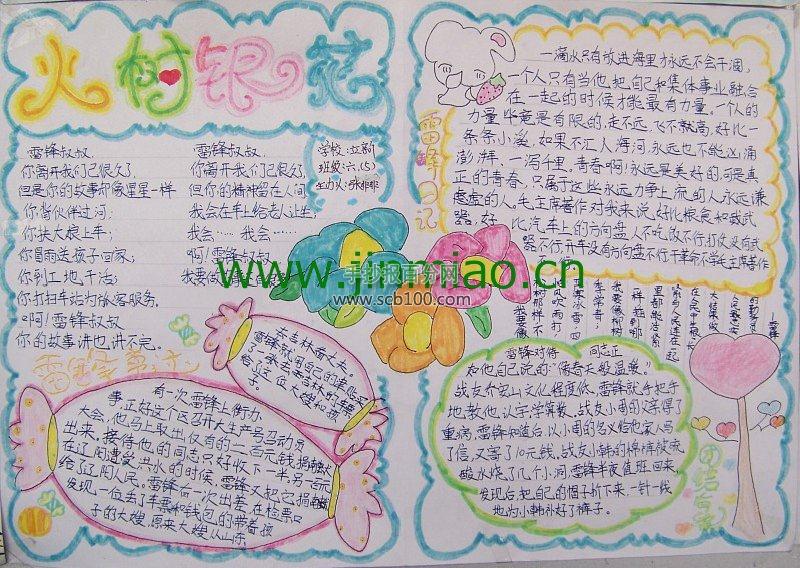 火树银花
雷锋叔叔，
你离开我们已很久了，
但是你的故事却像星星一样
你背伙伴过河；
你扶大娘上车；
你冒雨送孩子回家；
你到工地干活；
你打扫车站为旅客服务。
啊！雷锋叔叔
你的故事讲也讲不完。
雷锋叔叔，
你离开我们已很久了，
但你的精神留在人间
我会在车上给老人让坐；
我会……我会……
啊！雷锋叔叔
我要做
学校：立新
班级：六（5）
主办人：张非非
有一次，雷锋上街办
事正好这个区召开大生产号召动员
大会，他马上取出仅有的二百元钱捐献
出来，接待他的同志只好收下一半，另一百元
在辽阳遭受洪水的时候，雷锋又把它捐献
给了辽阳人民。雷锋有一次出差，在检票口
发现一位丢了车票和钱包的带着孩
子的大嫂，原来大嫂从山东
去吉林看丈夫。
雷锋就用自己的津贴买了
一张去吉林的车票
给了这位大嫂和孩
子。
雷锋日记
一滴水只有放进海里才永远不会干涸，
一个人只有当他把自己和集体事业融合
在一起的时候才能最有力量。一个人的
力量毕竟是有限的，走不远，飞不就高，好比一
条条小溪，如果不汇入海河，永远也不能汹涌
澎湃，一泻千里。青春啊！永远是美好的，可是真
正的青春，只属于这些永远力争上流的人，永远谦
虚的人。毛主席著作对我来说，好比粮食和武
器，好比汽车上的方向盘，人不吃饭不行，打仗没有武
器不行，开车没有方向盘不行，干革命不学毛主席著作
www.jinmiao.cn
手抄报百分网
www.scb100.com
雷锋对待同志正
如他自己说的“像春天般温暖”
战友乔安山文化程度低，雷锋就手把手
地教他认字学算数。战友小周的父亲得了
重病，雷锋知道后，以小周的名义给他家人写
了信，又寄了10元钱，战友小韩的棉裤被硫
酸水烧了几个小洞，雷锋半夜值班回来，
发现后，把自己的帽子拆下来，一针一线
地为小韩补好了裤子。
团结友爱